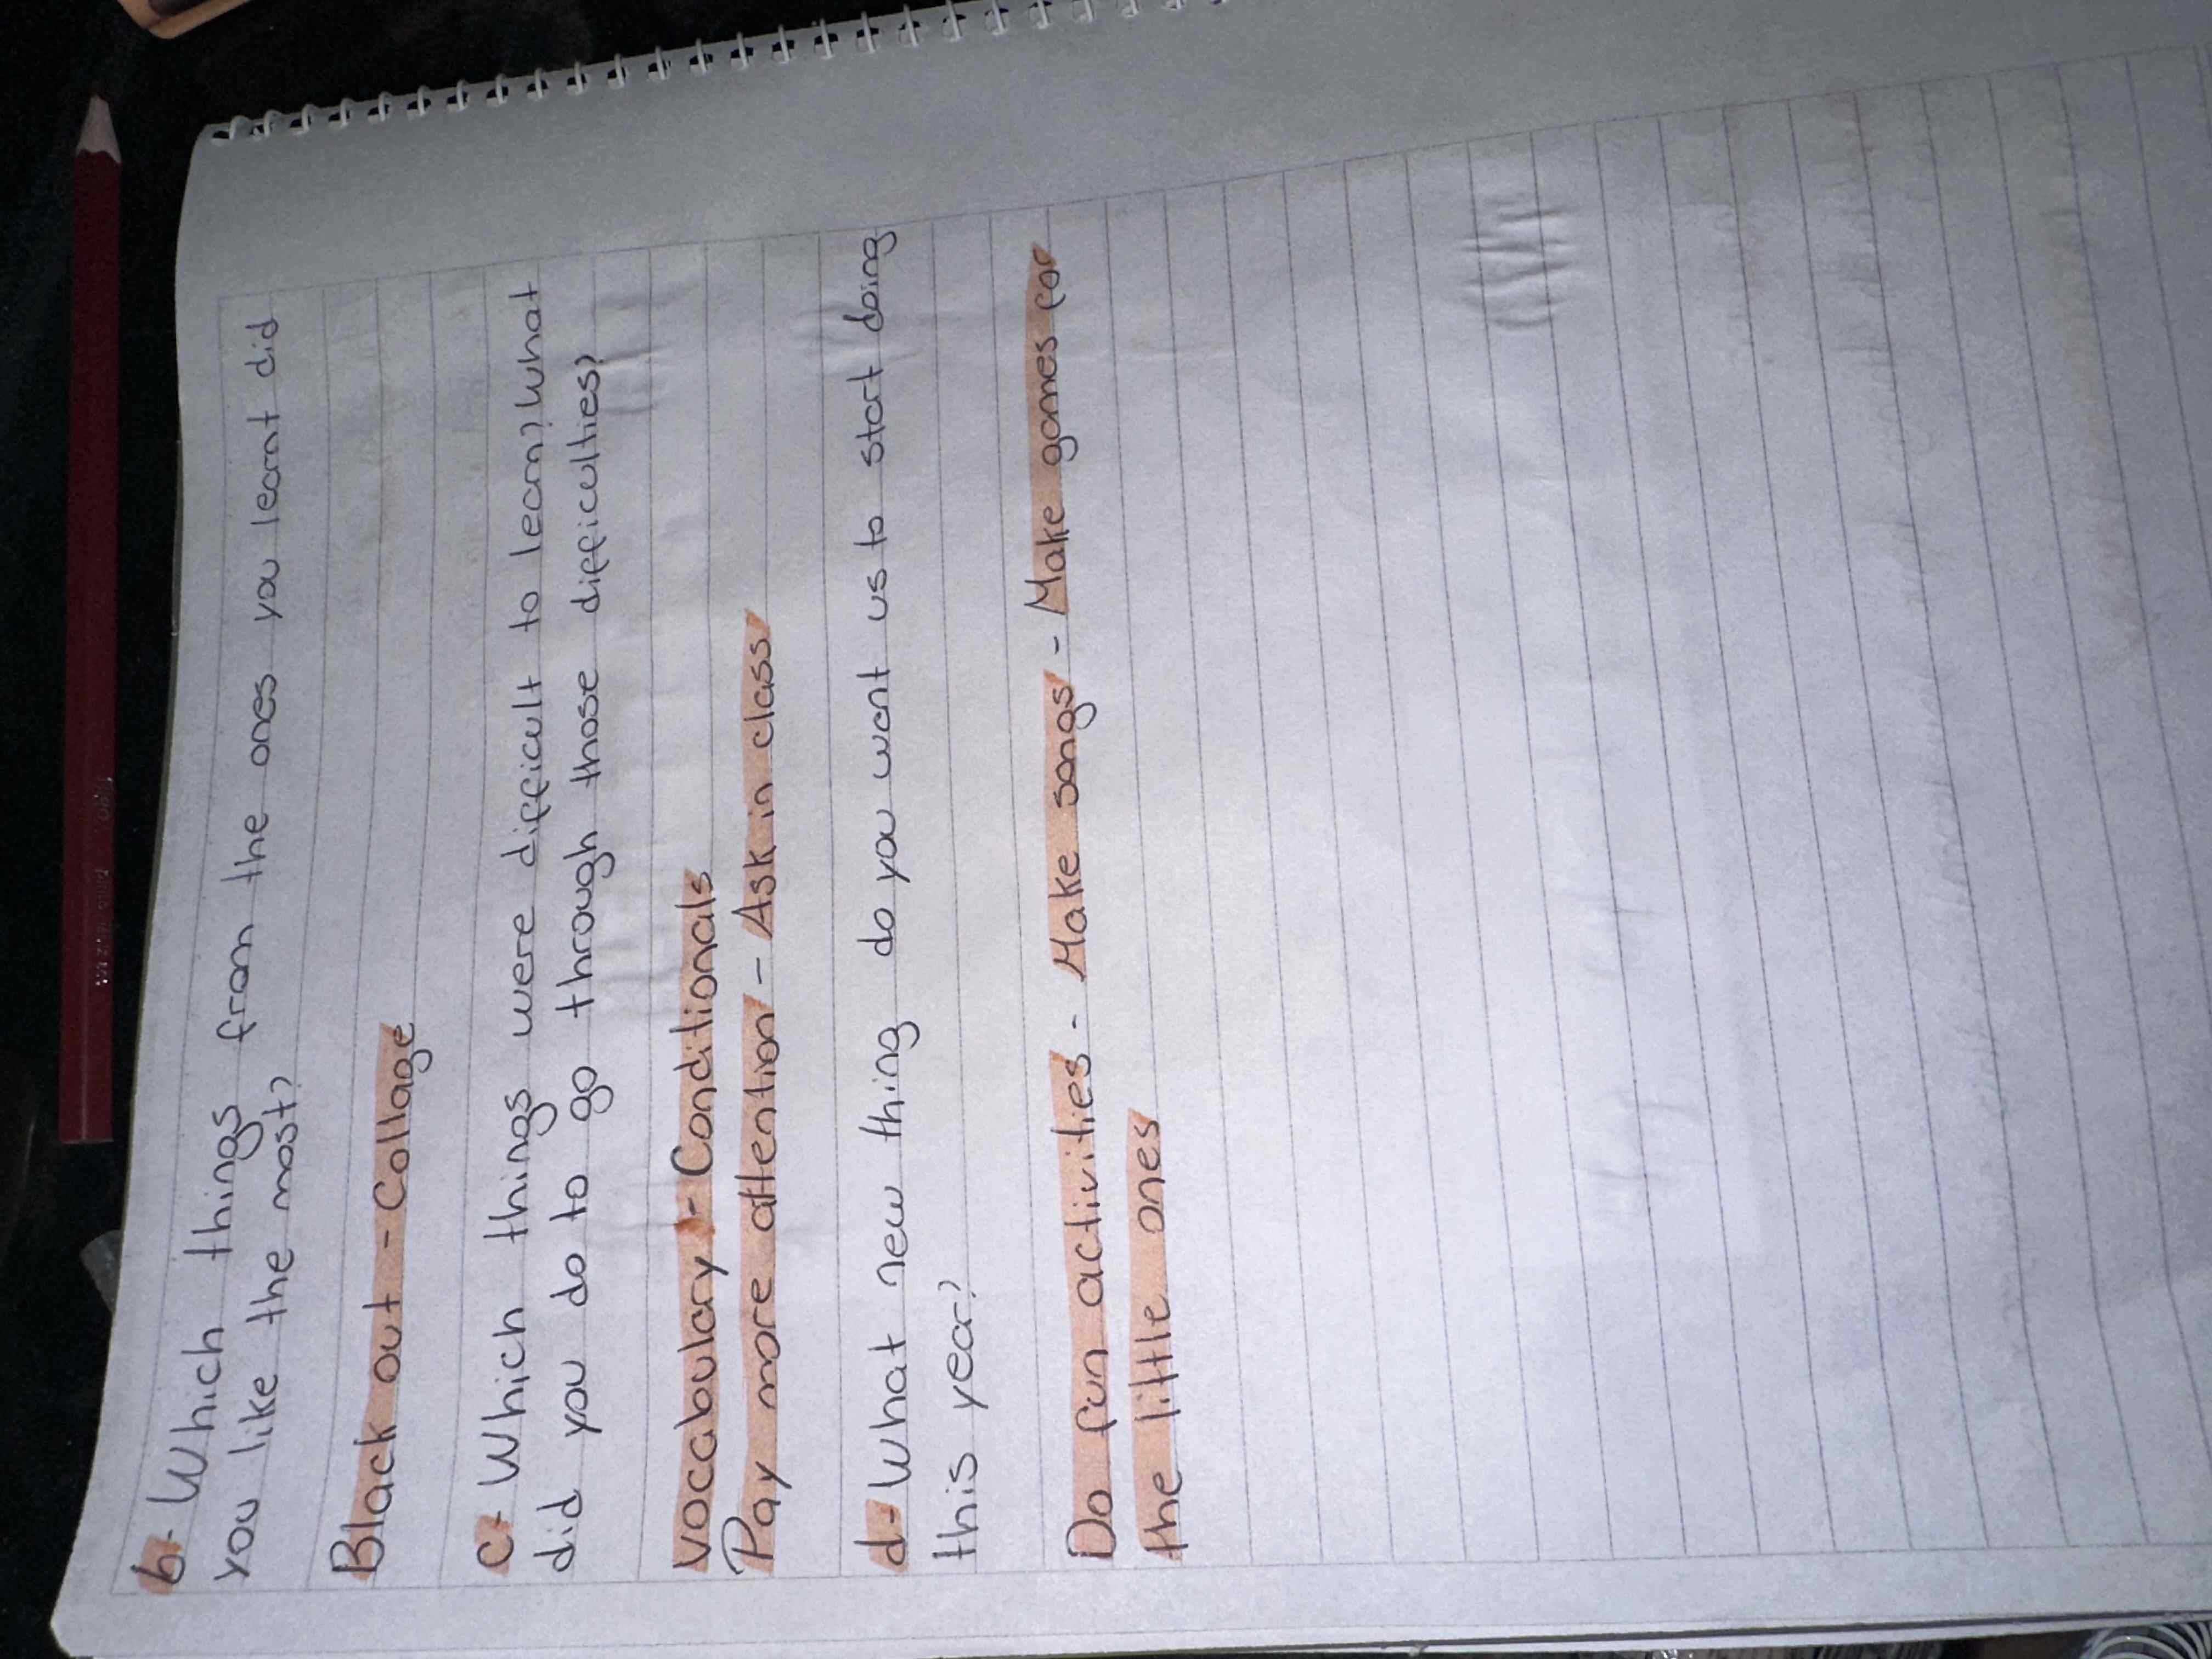 b- Which things from the ones you learnt did
you like the most?
Black out - Collage
c- Which things were difficult to learn? What
did you do to go through those difficulties?
Vocaboulary - Conditionals
Pay more attention - Ask in class
d- What new thing do you want us to start doing
this year?
Do fun activities - Make songs - Make games for
the little ones